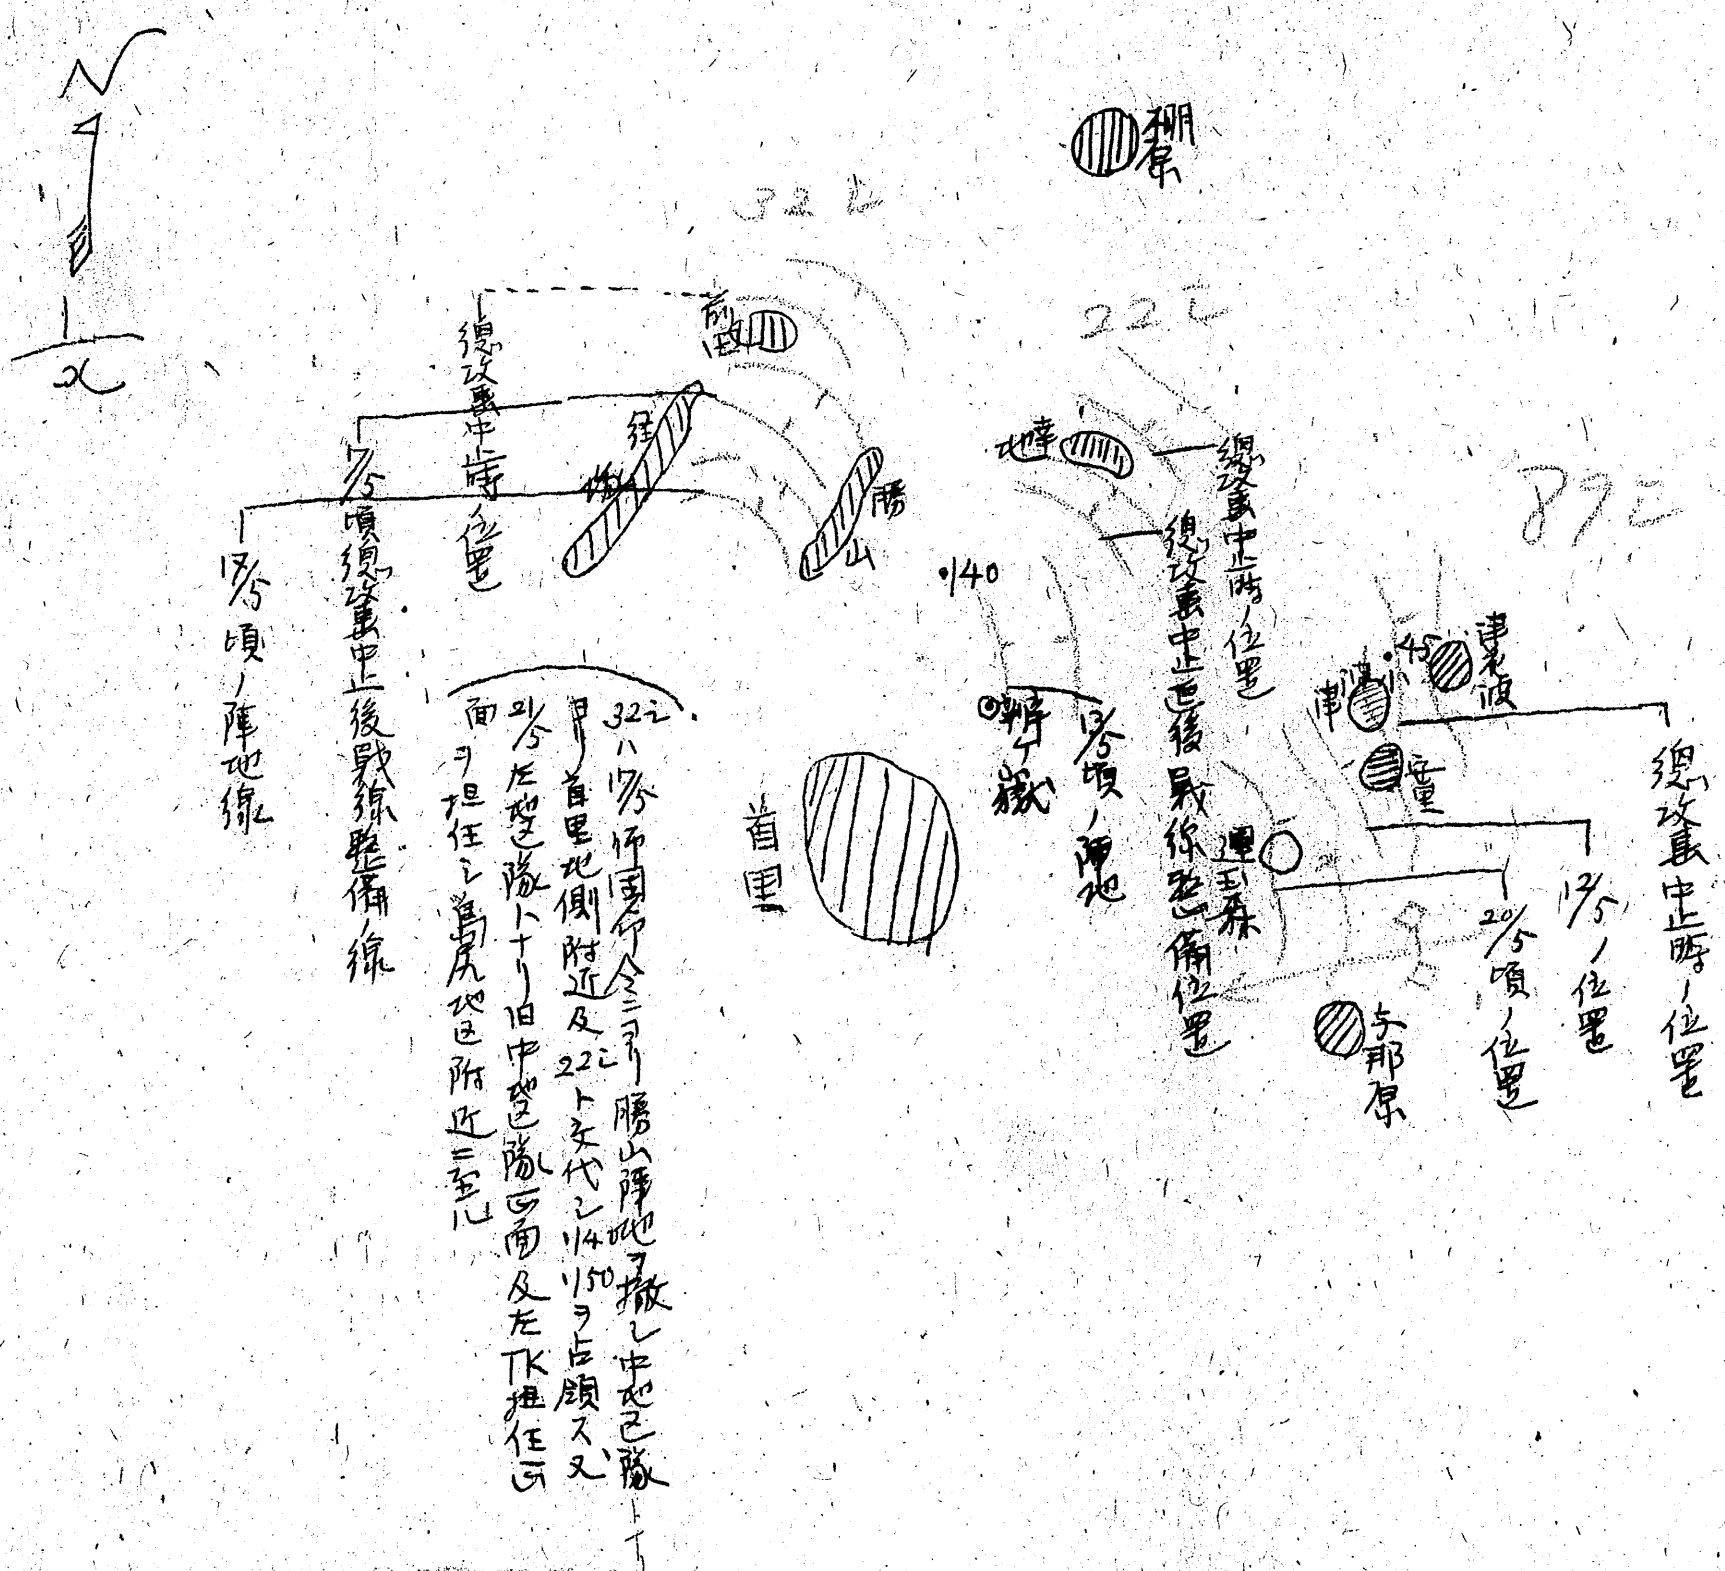 N
1
x
棚原
32i
22i
89i
前田
経塚
勝山
幸地
・140
弁ケ嶽
首里
運玉森
・45
津花波
津波小
安里
与那原
總攻撃中止時ノ位置
12/5ノ位置
20/5頃ノ位置
總攻撃中止時ノ位置
總攻撃中止直後戦線整備位置
13/5頃ノ陣地
總攻撃中止時ノ位置
7/5頃總攻撃中止後戦線整備ノ線
17/5頃ノ陣地線
32iハ17/5師団命令ニヨリ勝山陣地ヲ撤シ中地区隊トナ
リ首里北側附近及22iト交代シ140 150ヲ占領ス又
21/5左地区隊トナリ旧中地区隊正面及左TK担任正
面ヲ担任シ島尻地区附近ニ至ル